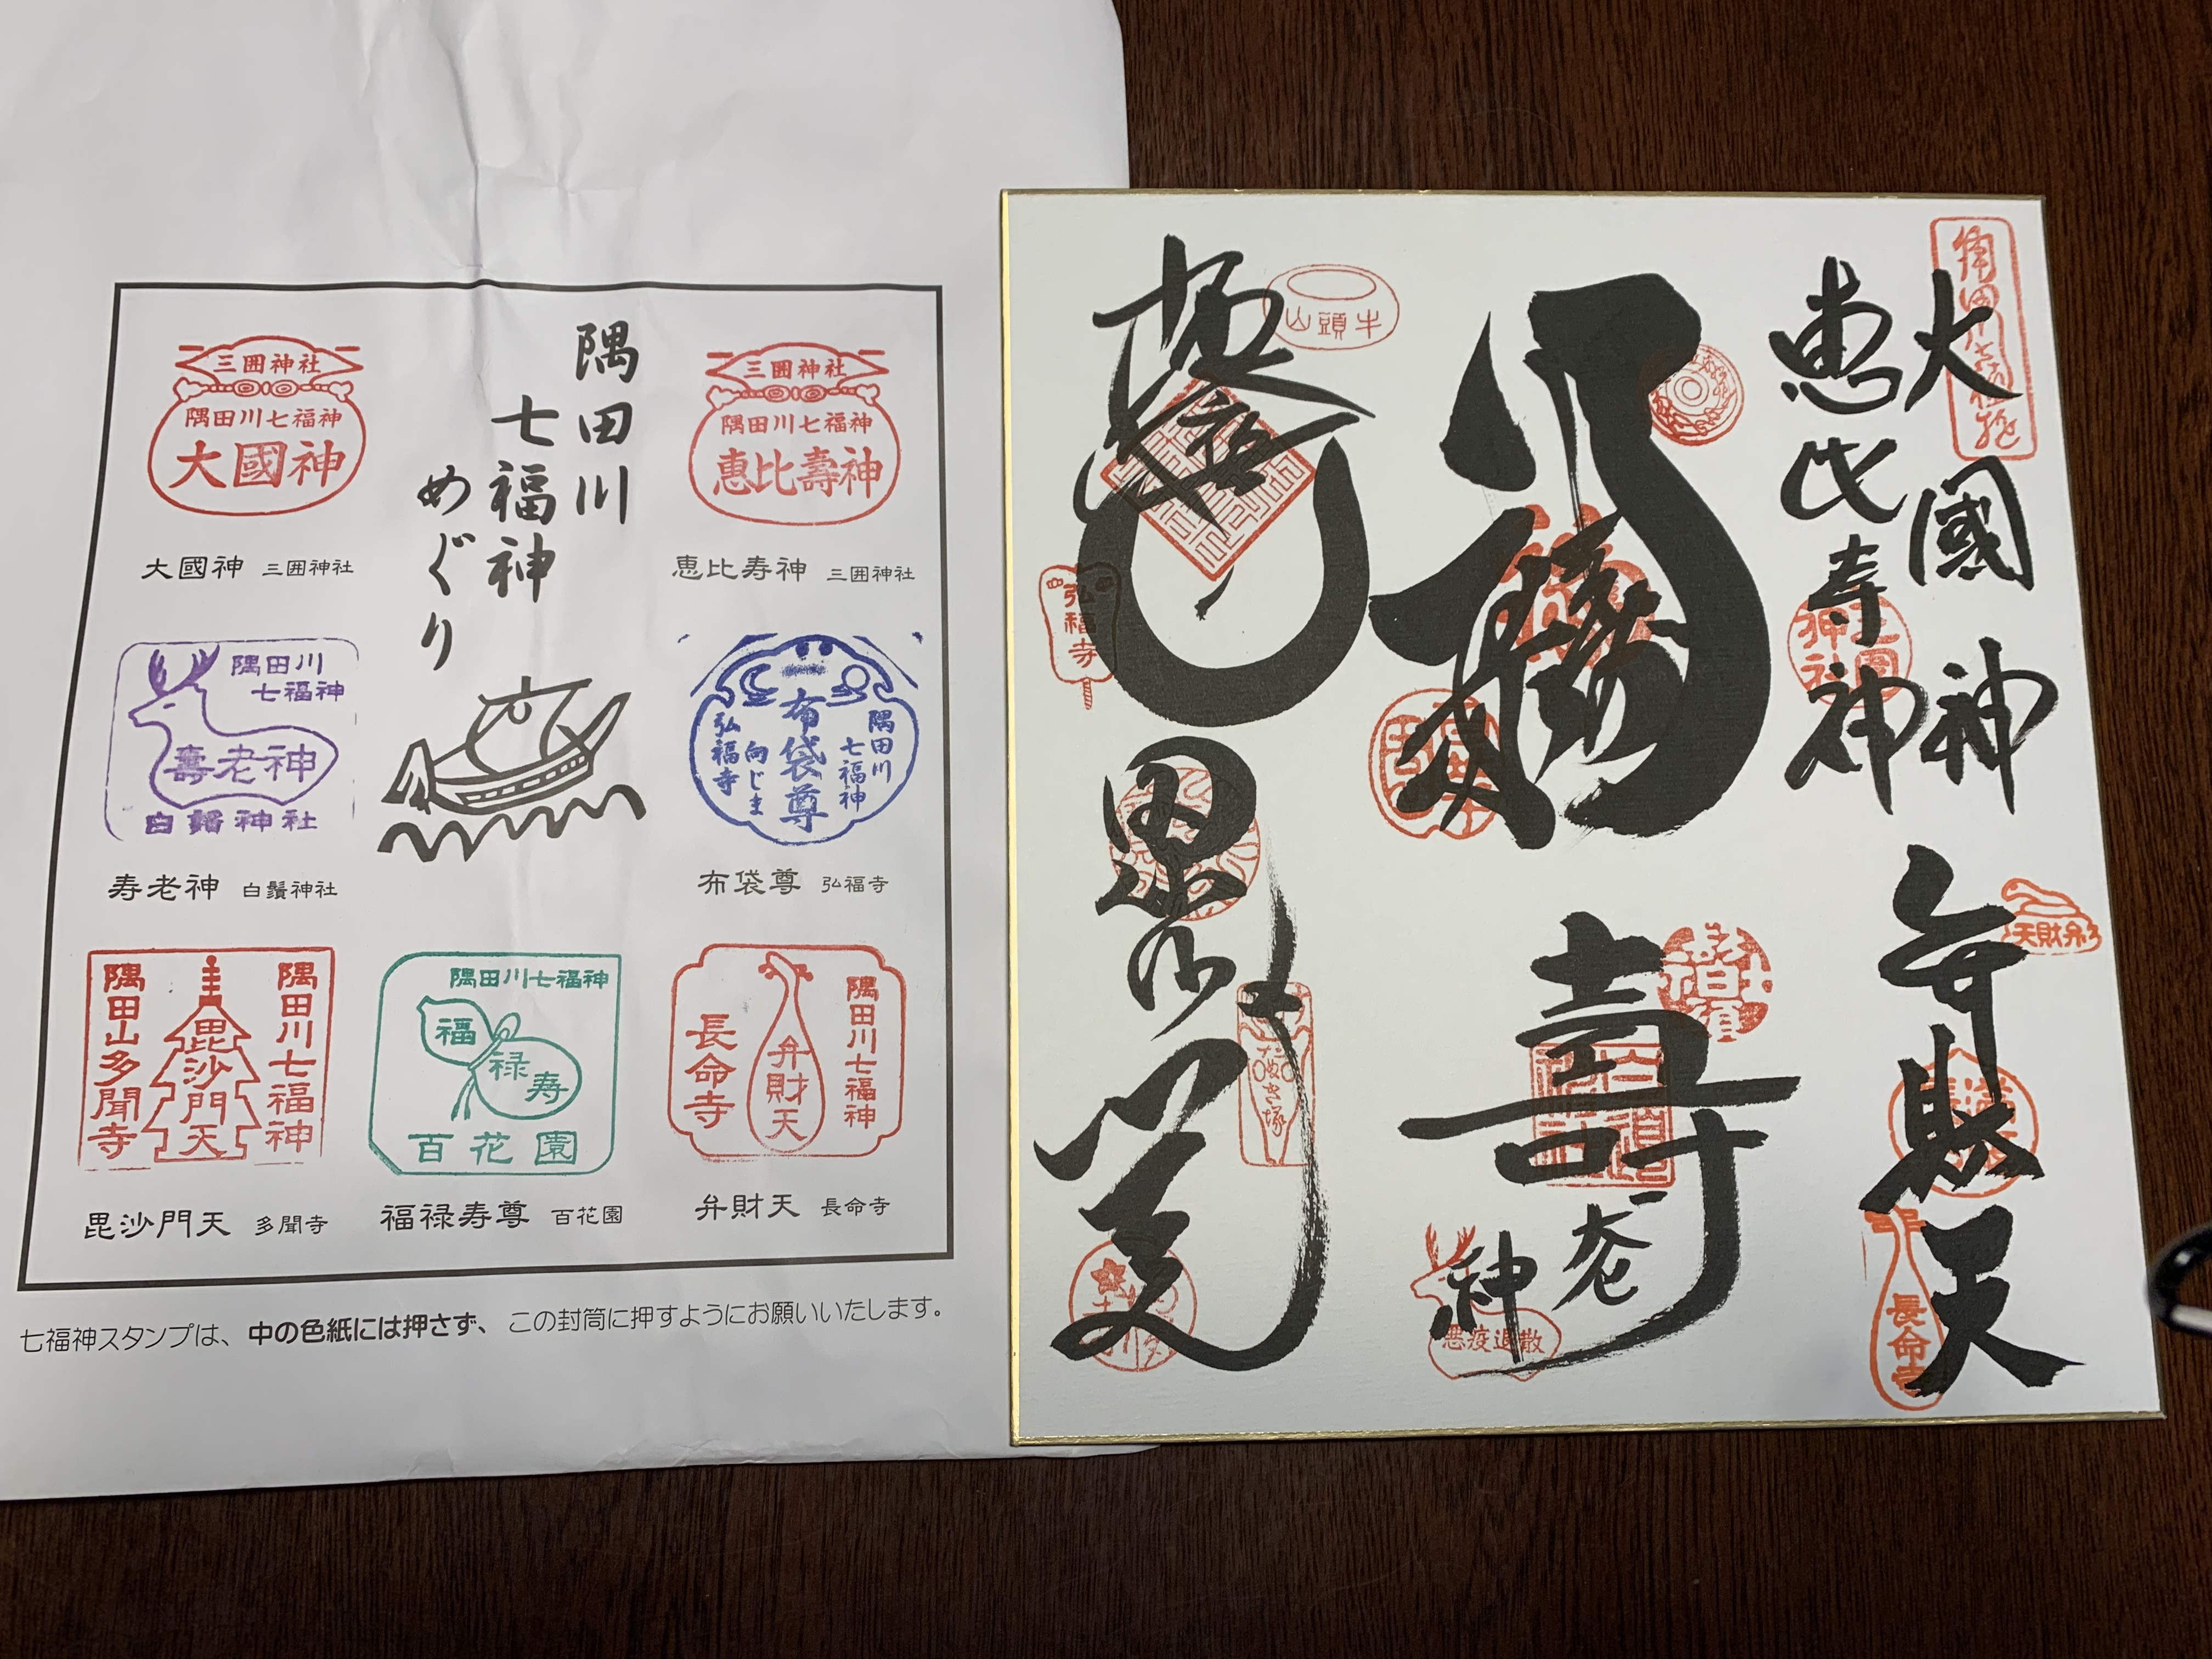 隅田川
七福神
めぐり
三囲神社
隅田川七福神
大國神
大國神 三囲神社
三囲神社
隅田川七福神
惠比壽神
恵比寿神 三囲神社
隅田川
七福神
壽老神
白鬚神社
寿老神 白鬚神社
隅田川
七福神
布袋尊
向じま
弘福寺
布袋尊 弘福寺
隅田川七福神
毘沙門天
隅田山多聞寺
毘沙門天 多聞寺
隅田川七福神
福
禄
寿
百花園
福禄寿尊 百花園
隅田川七福神
弁財天
長命寺
弁財天 長命寺
七福神スタンプは、中の色紙には押さず、この封筒に押すようにお願いいたします。
大國神
恵比寿神
弁財天
長命寺
壽老神
白鬚神社
悪疫退散
牛頭山
弘福寺
たぬき塚